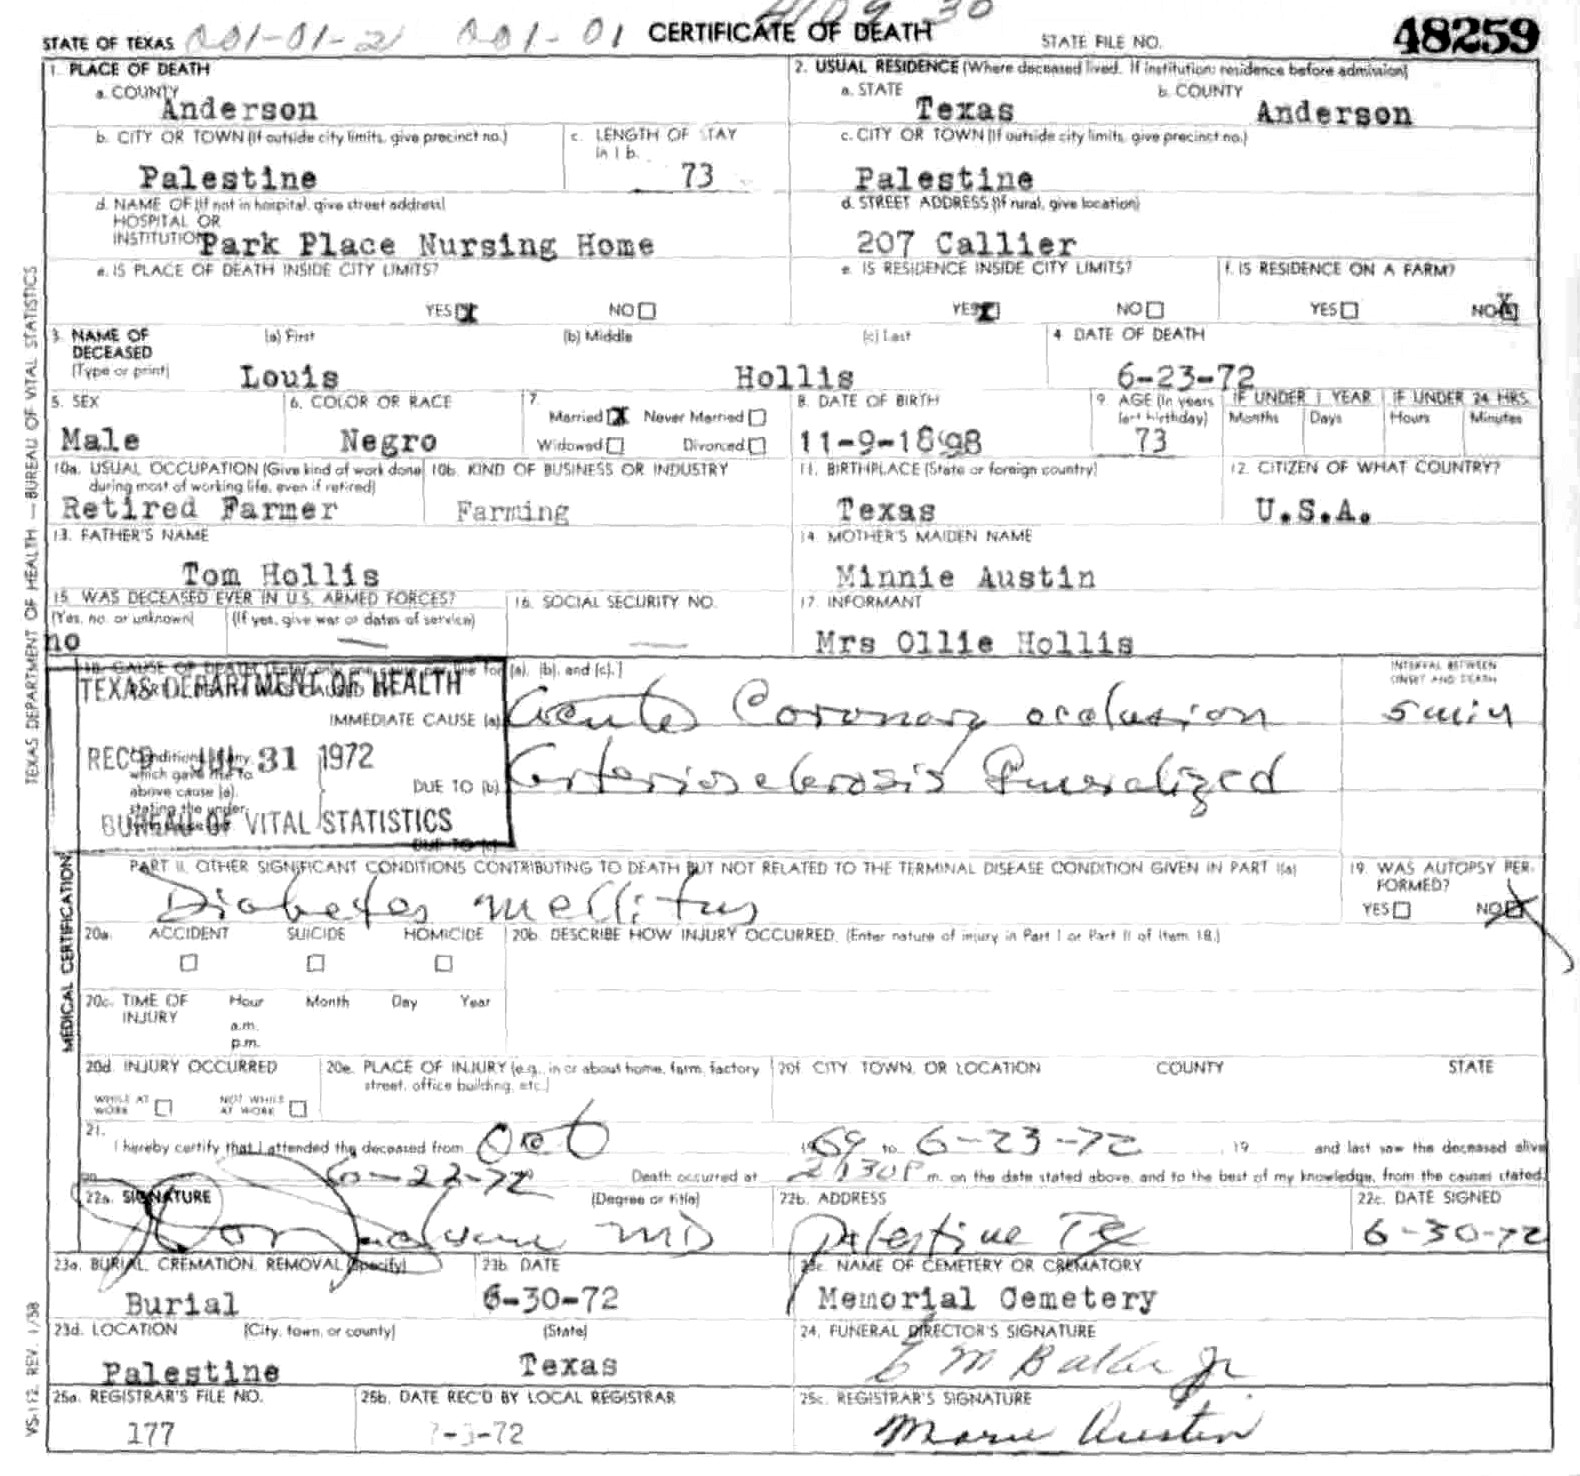 STATE OF TEXAS 001-01-2 001-01 CERTIFICATE OF DEATH STATE FILE NO. 48259
1. PLACE OF DEATH
a. COUNTY
Anderson
2. USUAL RESIDENCE (Where deceased lived. If institution: residence before admission)
a. STATE
Texas
b. COUNTY
Anderson
b. CITY OR TOWN (If outside city limits, give precinct no.)
Palestine
c. LENGTH OF STAY
in 1 b.
73
c. CITY OR TOWN (If outside city limits, give precinct no.)
Palestine
d. NAME OF (If not in hospital, give street address)
HOSPITAL OR
INSTITUTION Park Place Nursing Home
d. STREET ADDRESS (If rural, give location)
207 Callier
e. IS PLACE OF DEATH INSIDE CITY LIMITS?
YES NO
e. IS RESIDENCE INSIDE CITY LIMITS?
YES NO
f. IS RESIDENCE ON A FARM?
YES NO
3. NAME OF DECEASED (Type or print)
(a) First (b) Middle (c) Last
Louis Hollis
4 DATE OF DEATH
6-23-72
5. SEX
Male
6. COLOR OR RACE
Negro
7.
Married Never Married
Widowed Divorced
8. DATE OF BIRTH
11-9-1898
9. AGE (In years last birthday)
73
IF UNDER 1 YEAR
Months Days
IF UNDER 24 HRS.
Hours Minutes
10a. USUAL OCCUPATION (Give kind of work done
during most of working life, even if retired)
Retired Farmer
10b. KIND OF BUSINESS OR INDUSTRY
Farming
11. BIRTHPLACE (State or foreign country)
Texas
12. CITIZEN OF WHAT COUNTRY?
U.S.A.
13. FATHER'S NAME
Tom Hollis
14. MOTHER'S MAIDEN NAME
Minnie Austin
15. WAS DECEASED EVER IN U.S. ARMED FORCES?
(Yes, no, or unknown) (If yes, give war or dates of service)
no
16. SOCIAL SECURITY NO.
17. INFORMANT
Mrs Ollie Hollis
18. CAUSE OF DEATH [Enter only one cause per line for (a), (b), and (c).]
INTERVAL BETWEEN
ONSET AND DEATH
TEXAS DEPARTMENT OF HEALTH
IMMEDIATE CAUSE (a) Acute Coronary occlusion 5 min
REC'D JUL 31 1972
Conditions
which gave rise to
above cause (a),
stating the under-
DUE TO (b) Arteriosclerosis Generalized
BUREAU OF VITAL STATISTICS
DUE TO (c)
PART II. OTHER SIGNIFICANT CONDITIONS CONTRIBUTING TO DEATH BUT NOT RELATED TO THE TERMINAL DISEASE CONDITION GIVEN IN PART I(a)
Diabetes mellitus
19. WAS AUTOPSY PER-
FORMED?
YES NO
20a. ACCIDENT SUICIDE HOMICIDE
20b. DESCRIBE HOW INJURY OCCURRED. (Enter nature of injury in Part I or Part II of item 18.)
20c. TIME OF INJURY
Hour Month Day Year
a.m.
p.m.
20d. INJURY OCCURRED
WHILE AT WORK NOT WHILE AT WORK
20e. PLACE OF INJURY (e.g., in or about home, farm, factory
street, office building, etc.)
20f. CITY, TOWN, OR LOCATION COUNTY STATE
21.
I hereby certify that I attended the deceased from Oct 1969 to 6-23-72, 19 and last saw the deceased alive
on 6-22-72 Death occurred at 2:30P m. on the date stated above, and to the best of my knowledge, from the causes stated.
22a. SIGNATURE (Degree or title)
MD
22b. ADDRESS
Palestine Tx
22c. DATE SIGNED
6-30-72
23a. BURIAL, CREMATION, REMOVAL (Specify)
Burial
23b. DATE
6-30-72
23c. NAME OF CEMETERY OR CREMATORY
Memorial Cemetery
23d. LOCATION (City, town, or county) (State)
Palestine Texas
24. FUNERAL DIRECTOR'S SIGNATURE
E M Bailey Jr
25a. REGISTRAR'S FILE NO.
177
25b. DATE REC'D BY LOCAL REGISTRAR
-3-72
25c. REGISTRAR'S SIGNATURE
Marie Austin
TEXAS DEPARTMENT OF HEALTH — BUREAU OF VITAL STATISTICS
MEDICAL CERTIFICATION
VS-112 REV. 1/58